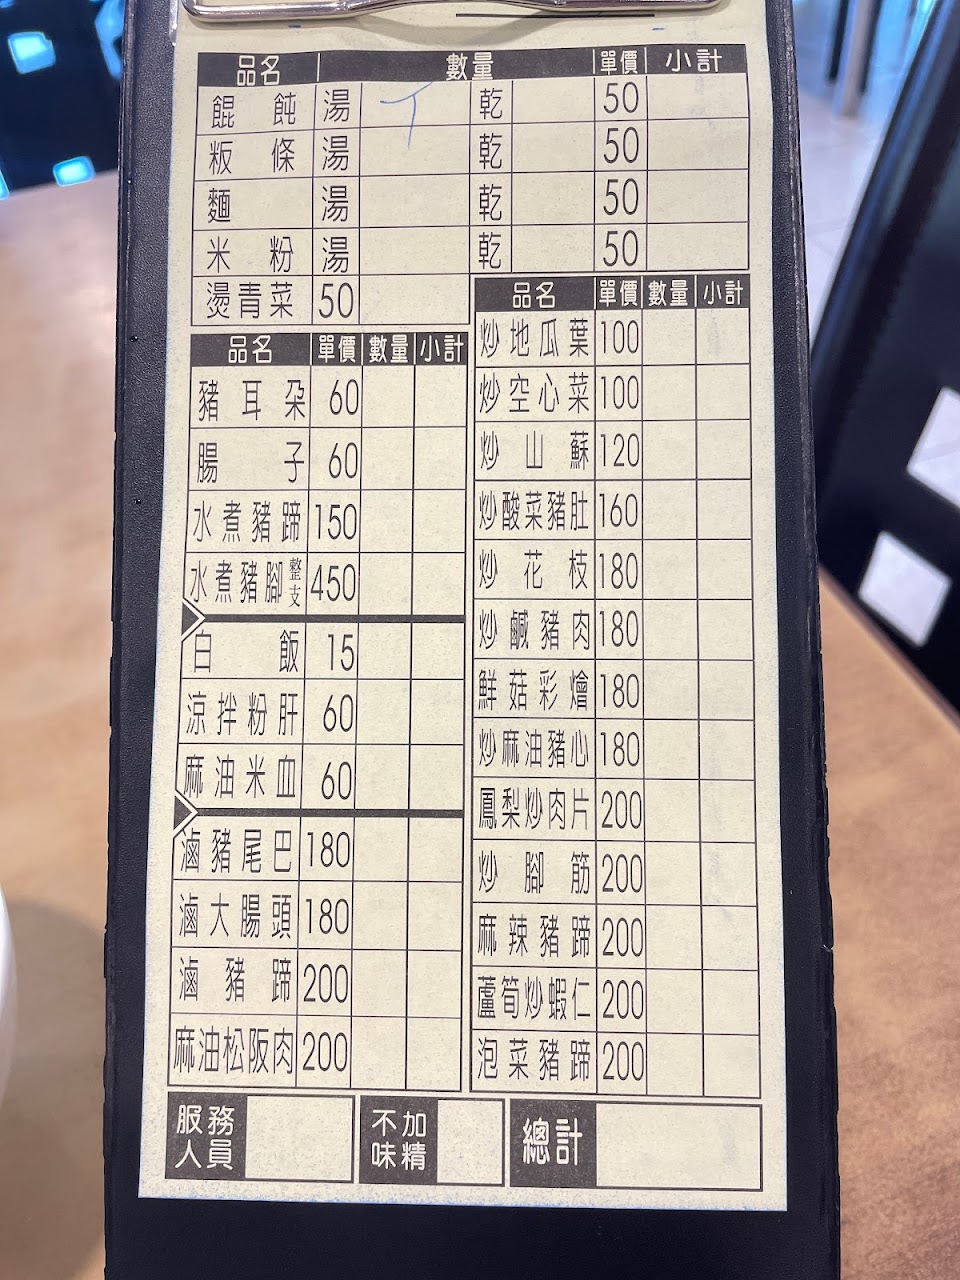 品名 數量 單價 小計
餛飩 湯 乾 50
粄條 湯 乾 50
麵 湯 乾 50
米粉 湯 乾 50
燙青菜 50
品名 單價 數量 小計
豬耳朵 60
腸子 60
水煮豬蹄 150
水煮豬腳 整支 450
白飯 15
涼拌粉肝 60
麻油米血 60
滷豬尾巴 180
滷大腸頭 180
滷豬蹄 200
麻油松阪肉 200
品名 單價 數量 小計
炒地瓜葉 100
炒空心菜 100
炒山蘇 120
炒酸菜豬肚 160
炒花枝 180
炒鹹豬肉 180
鮮菇彩燴 180
炒麻油豬心 180
鳳梨炒肉片 200
炒腳筋 200
麻辣豬蹄 200
蘆筍炒蝦仁 200
泡菜豬蹄 200
服務人員
不加味精
總計